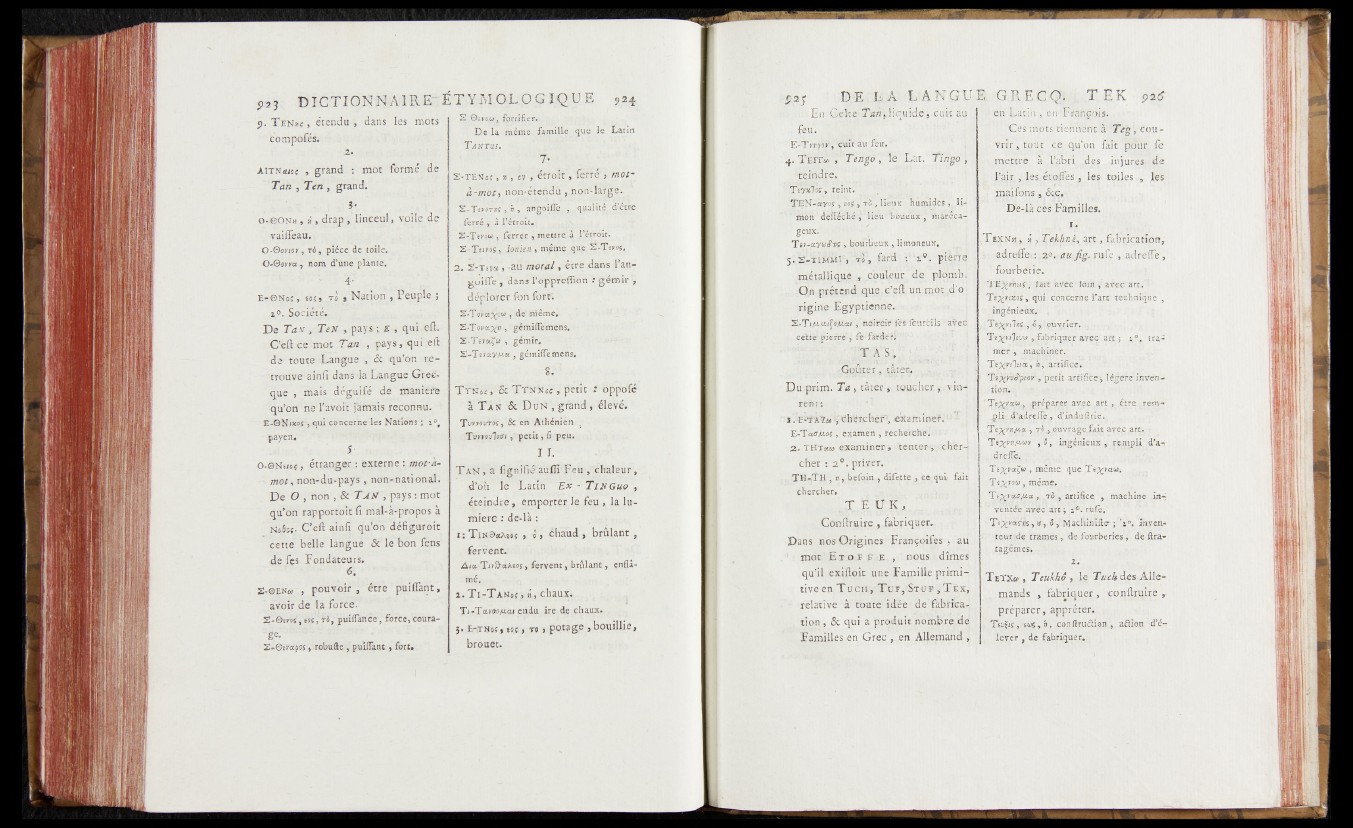 923 DICTIONNAIRE ÉTYMOLOGIQUE 924
9. TENας, étendu, dans les mots
compoſés.
2.
AITNαιος, grand : mot formé de
Tan, Ten, grand.
3.
O-ΘONη, ἡ, drap, linceul, voile de
vaiſſeau.
O-Θονιον, τὸ, piéce de toile.
O-Θοννα, nom d'une plante.
4.
E-ΘNος, εος, τὸ, Nation, Peuple ;
2°. Société.
De TAN, TEN, pays ; E, qui eſt.
C'eſt ce mot Tan, pays, qui eſt
de toute Langue, & qu'on re-
trouve ainſi dans la Langue Grec-
que, mais déguiſé de maniere
qu'on ne l'avoit jamais reconnu.
E-ΘNικος, qui concerne les Nations ; 2°.
payen.
5.
O-ΘNειος, étranger : externe : mot-à-
mot, non-du-pays, non-national.
De O, non, & TAN, pays : mot
qu'on rapportoit ſi mal-à-propos à
Νοθος. C'eſt ainſi qu'on défiguroit
cette belle langue & le bon ſens
de ſes Fondateurs.
6.
Σ-ΘENω, pouvoir, être puiſſant,
avoir de la force.
Σ-Θενος, εος, τὸ, puiſſance, force, coura-
ge.
Σ-Θεναρος, robuſte, puiſſant, fort.
Σ-Θενοω, fortifier.
De la même famille que le Latin
TANTUS.
7.
Σ-TENος, η, ον, étroit, ſerré, mot-
à-mot, non-étendu, non-large.
Σ-Τενοτης, ἡ, angoiſſe, qualité d'être
ſerré, à l'étroit.
Σ-Τενοω, ſerrer, mettre à l'étroit.
Σ-Τεινος, Ionien, même que Σ-Τενος.
2. Σ-Τενω, au moral, être dans l'an-
goiſſe, dans l'oppreſſion : gémir,
déplorer ſon ſort.
Σ-Τεναχω, de même.
Σ-Τοναχη, gémiſſemens.
Σ-Τεναζω, gémir.
Σ-Τεναγμα, gémiſſemens.
8.
ΤΥΝος, & ΤΥΝΝος, petit : oppoſé
à TAN & DUN, grand, élevé.
Τυννουτος, & en Athénien
Τυννουτοσι, petit, ſi peu.
II.
TAN, a ſignifié auſſi Feu, chaleur,
d'où le Latin Ex-TINGuo,
éteindre, emporter le feu, la lu-
miere : de-là :
1. TINΘαλεος, ὁ, chaud, brûlant,
fervent.
Δια-Τινθαλεος, fervent, brûlant, enflâ-
mé.
2. TI-TANος, ἡ, chaux.
Τι-Τανοομαι enduire de chaux.
3. E-TNος, εος, το, potage, bouillie,
brouet.
925 DE LA LANGUE GRECQ. TEK 926
En Celte Tan, liquide, cuit au
feu.
4. ΤΕΓΓω, Tengo, le Lat. Tingo,
teindre.
teint.
TEN-αγος, εος, τὸ, lieux humides, li-
mon deſſéché, lieu boueux, maréca-
geux.
Τεν-αγωδης, bourbeux, limoneux.
5. Σ-TIMMI, τὸ, fard : 2°. pierre
métallique, couleur de plomb.
On prétend que c'eſt un mot d'o-
rigine Egyptienne.
Σ-Τιμμιζομαι, noircir ſes ſourcils avec
cette pierre, ſe farder.
TAS,
Goûter, tâter.
Du prim. Ta, tâter, toucher, vin-
rent :
1. E-TAZω, chercher, examiner.
E-Τασμος, examen, recherche.
2. THTαω examiner, tenter, cher-
cher : 2°. priver.
TH-TH, ἡ, beſoin, diſette, ce qui fait
chercher.
TEUK,
Conſtruire, fabriquer.
Dans nos Origines Françoiſes, au
mot ETOFFE, nous dîmes
qu'il exiſtoit une Famille primi-
tive en TUCH, TUF, STUF, TEX,
relative à toute idée de fabrica-
tion, & qui a produit nombre de
Familles en Grec, en Allemand,
en Latin, en François.
Ces mots tiennent à Teg, cou-
vrir, tout ce qu'on fait pour ſe
mettre à l'abri des injures de
l'air, les étoffes, les toiles, les
maiſons, &c.
De-là ces Familles.
1.
TEXNη, ἡ, Tekhnè, art, fabrication,
adreſſe : 2°. au fig. ruſe, adreſſe,
fourberie.
fait avec ſoin, avec art.
Τεχνικος, qui concerne l'art technique,
ingénieux.
Τεχνιτης, ὁ, ouvrier.
Τεχνιτευω, fabriquer avec art ; 2°. tra-
mer, machiner.
artifice.
Τεχνυδριον, petit artifice, légere inven-
tion.
Τεχναω, préparer avec art, être rem-
pli d'adreſſe, d'induſtrie.
Τεχνημα, τὸ, ouvrage fait avec art.
Τεχνημων, ὁ, ingénieux, rempli d'a-
dreſſe.
Τεχναζω, même que Τεχναω.
même.
Τεχνασμα, τὸ, artifice, machine in-
ventée avec art ; 2°. ruſe.
ὁ, Machiniſte ; 2°. inven-
teur de trames, de fourberies, de ſtra-
tagêmes.
2.
ΤΕΥΧω, Teukhô, le Tuch des Alle-
mands, fabriquer, conſtruire,
préparer, apprêter.
Τευξις, εως, ἡ, conſtruction, action d'é-
lever, de fabriquer.